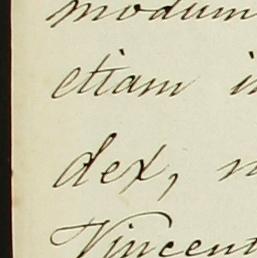 modum
etiam i
dex, n
Vincent